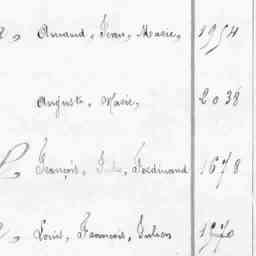 Amand, Jean, Marie, 1954
Auguste, Marie, 2038
François, Jules, Ferdinand 1678
Louis, François, Julien 1970